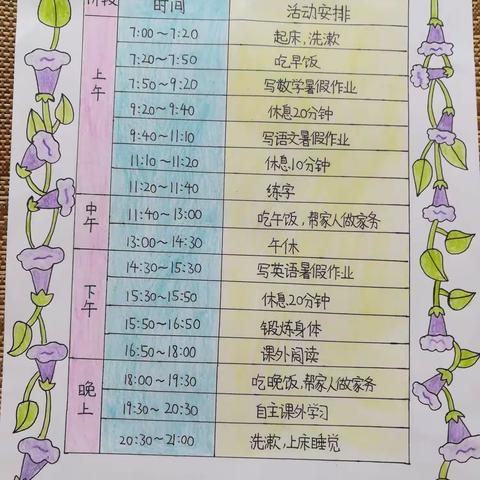 阶段 时间 活动安排
上午
7:00~7:20 起床,洗漱
7:20~7:50 吃早饭
7:50~9:20 写数学暑假作业
9:20~9:40 休息20分钟
9:40~11:10 写语文暑假作业
11:10~11:20 休息10分钟
11:20~11:40 练字
中午
11:40~13:00 吃午饭,帮家人做家务
13:00~14:30 午休
下午
14:30~15:30 写英语暑假作业
15:30~15:50 休息20分钟
15:50~16:50 锻炼身体
16:50~18:00 课外阅读
晚上
18:00~19:30 吃晚饭,帮家人做家务
19:30~20:30 自主课外学习
20:30~21:00 洗漱,上床睡觉